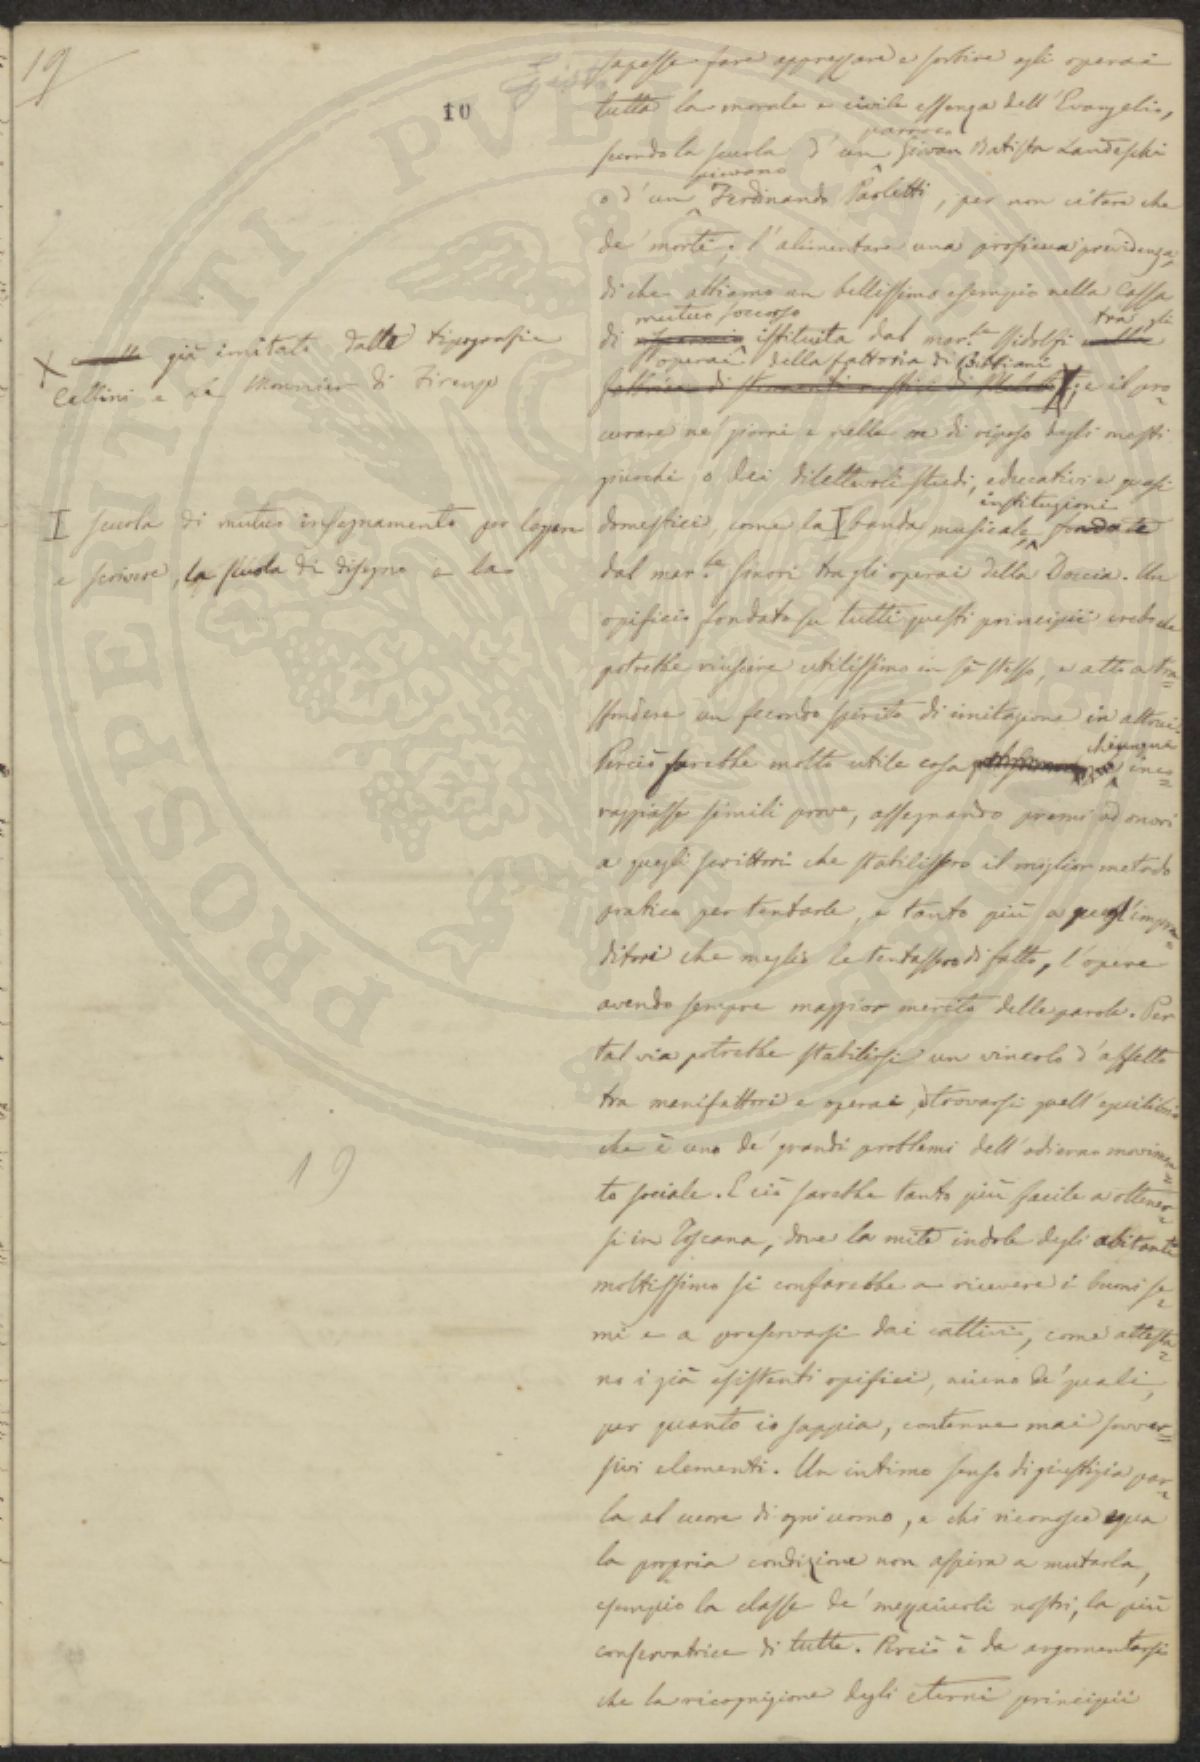 19
10
sapesse fare apprezzare e sortire agli operai
tutta la morale e civile essenza dell'Evangelio,
parroco
secondo la scuola d'un Giovan Batista Landeschi
piovano
o d'un Ferdinando Paoletti, per non citare che
de' morti; l'alimentare una proficua previdenza,
di che abbiamo un bellissimo esempio nella Cassa
mutuo soccorso tra gli
di istituita dal mar.se Ridolfi nella
operai della fattoria di Bibbiani
fabbrica di strumenti rustici di ; e il pro=
X già imitata dalle tipografie
Cellini e Le Monnier di Firenze
curare ne' giorni e nelle ore di riposo degli onesti
giuochi o dei dilettevoli studi, educativi e quasi
instituzioni
domestici, come la I banda musicale fondate
I scuola di mutuo insegnamento per leggere
e scrivere, la scuola di disegno e la
dal mar.se Ginori tra gli operai della Doccia. Un
opificio fondato su tutti questi principii credo che
potrebbe riuscire utilissimo in sè stesso, e atto a tra=
sfondere un fecondo spirito di imitazione in altrui.
chiunque
Perciò farebbe molto utile cosa inco=
raggiasse simili prove, assegnando premi ad onori
a quegli scrittori che stabilissero il miglior metodo
pratico per tentarle, e tanto più a quegl'impren=
ditori che meglio le tentassero di fatto, l'opere
avendo sempre maggior merito delle parole. Per
tal via potrebbe stabilirsi un vincolo d'affetto
tra manifattori e operai, e trovarsi quell'equilibrio
che è uno de' grandi problemi dell'odierno movimen=
19
to sociale. E ciò sarebbe tanto più facile a ottener=
si in Toscana, dove la mite indole degli abitanti
moltissimo si confarebbe a ricevere i buoni se=
mi e a preservarsi dai cattivi, come attesta=
no i già esistenti opifici, niuno de' quali,
per quanto io sappia, contenne mai sovver=
sivi elementi. Un intimo senso di giustizia par=
la al cuore di ogni uomo, e chi riconosce equa
la propria condizione non aspira a mutarla,
esempio la classe de' mezzaiuoli nostri, la più
conservatrice di tutte. Perciò è da argomentarsi
che la ricognizione degli eterni principii